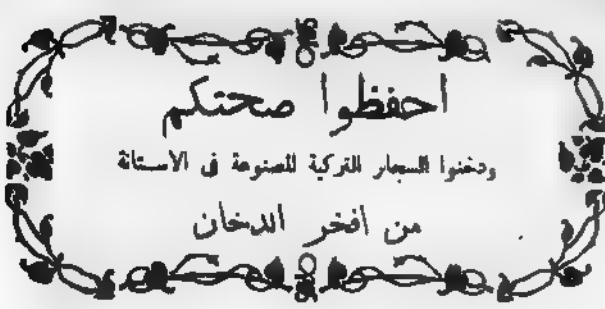 احفظوا صحتكم
ودخنوا السجار التركية المصنوعة فى الاستانة
من أفخر الدخان